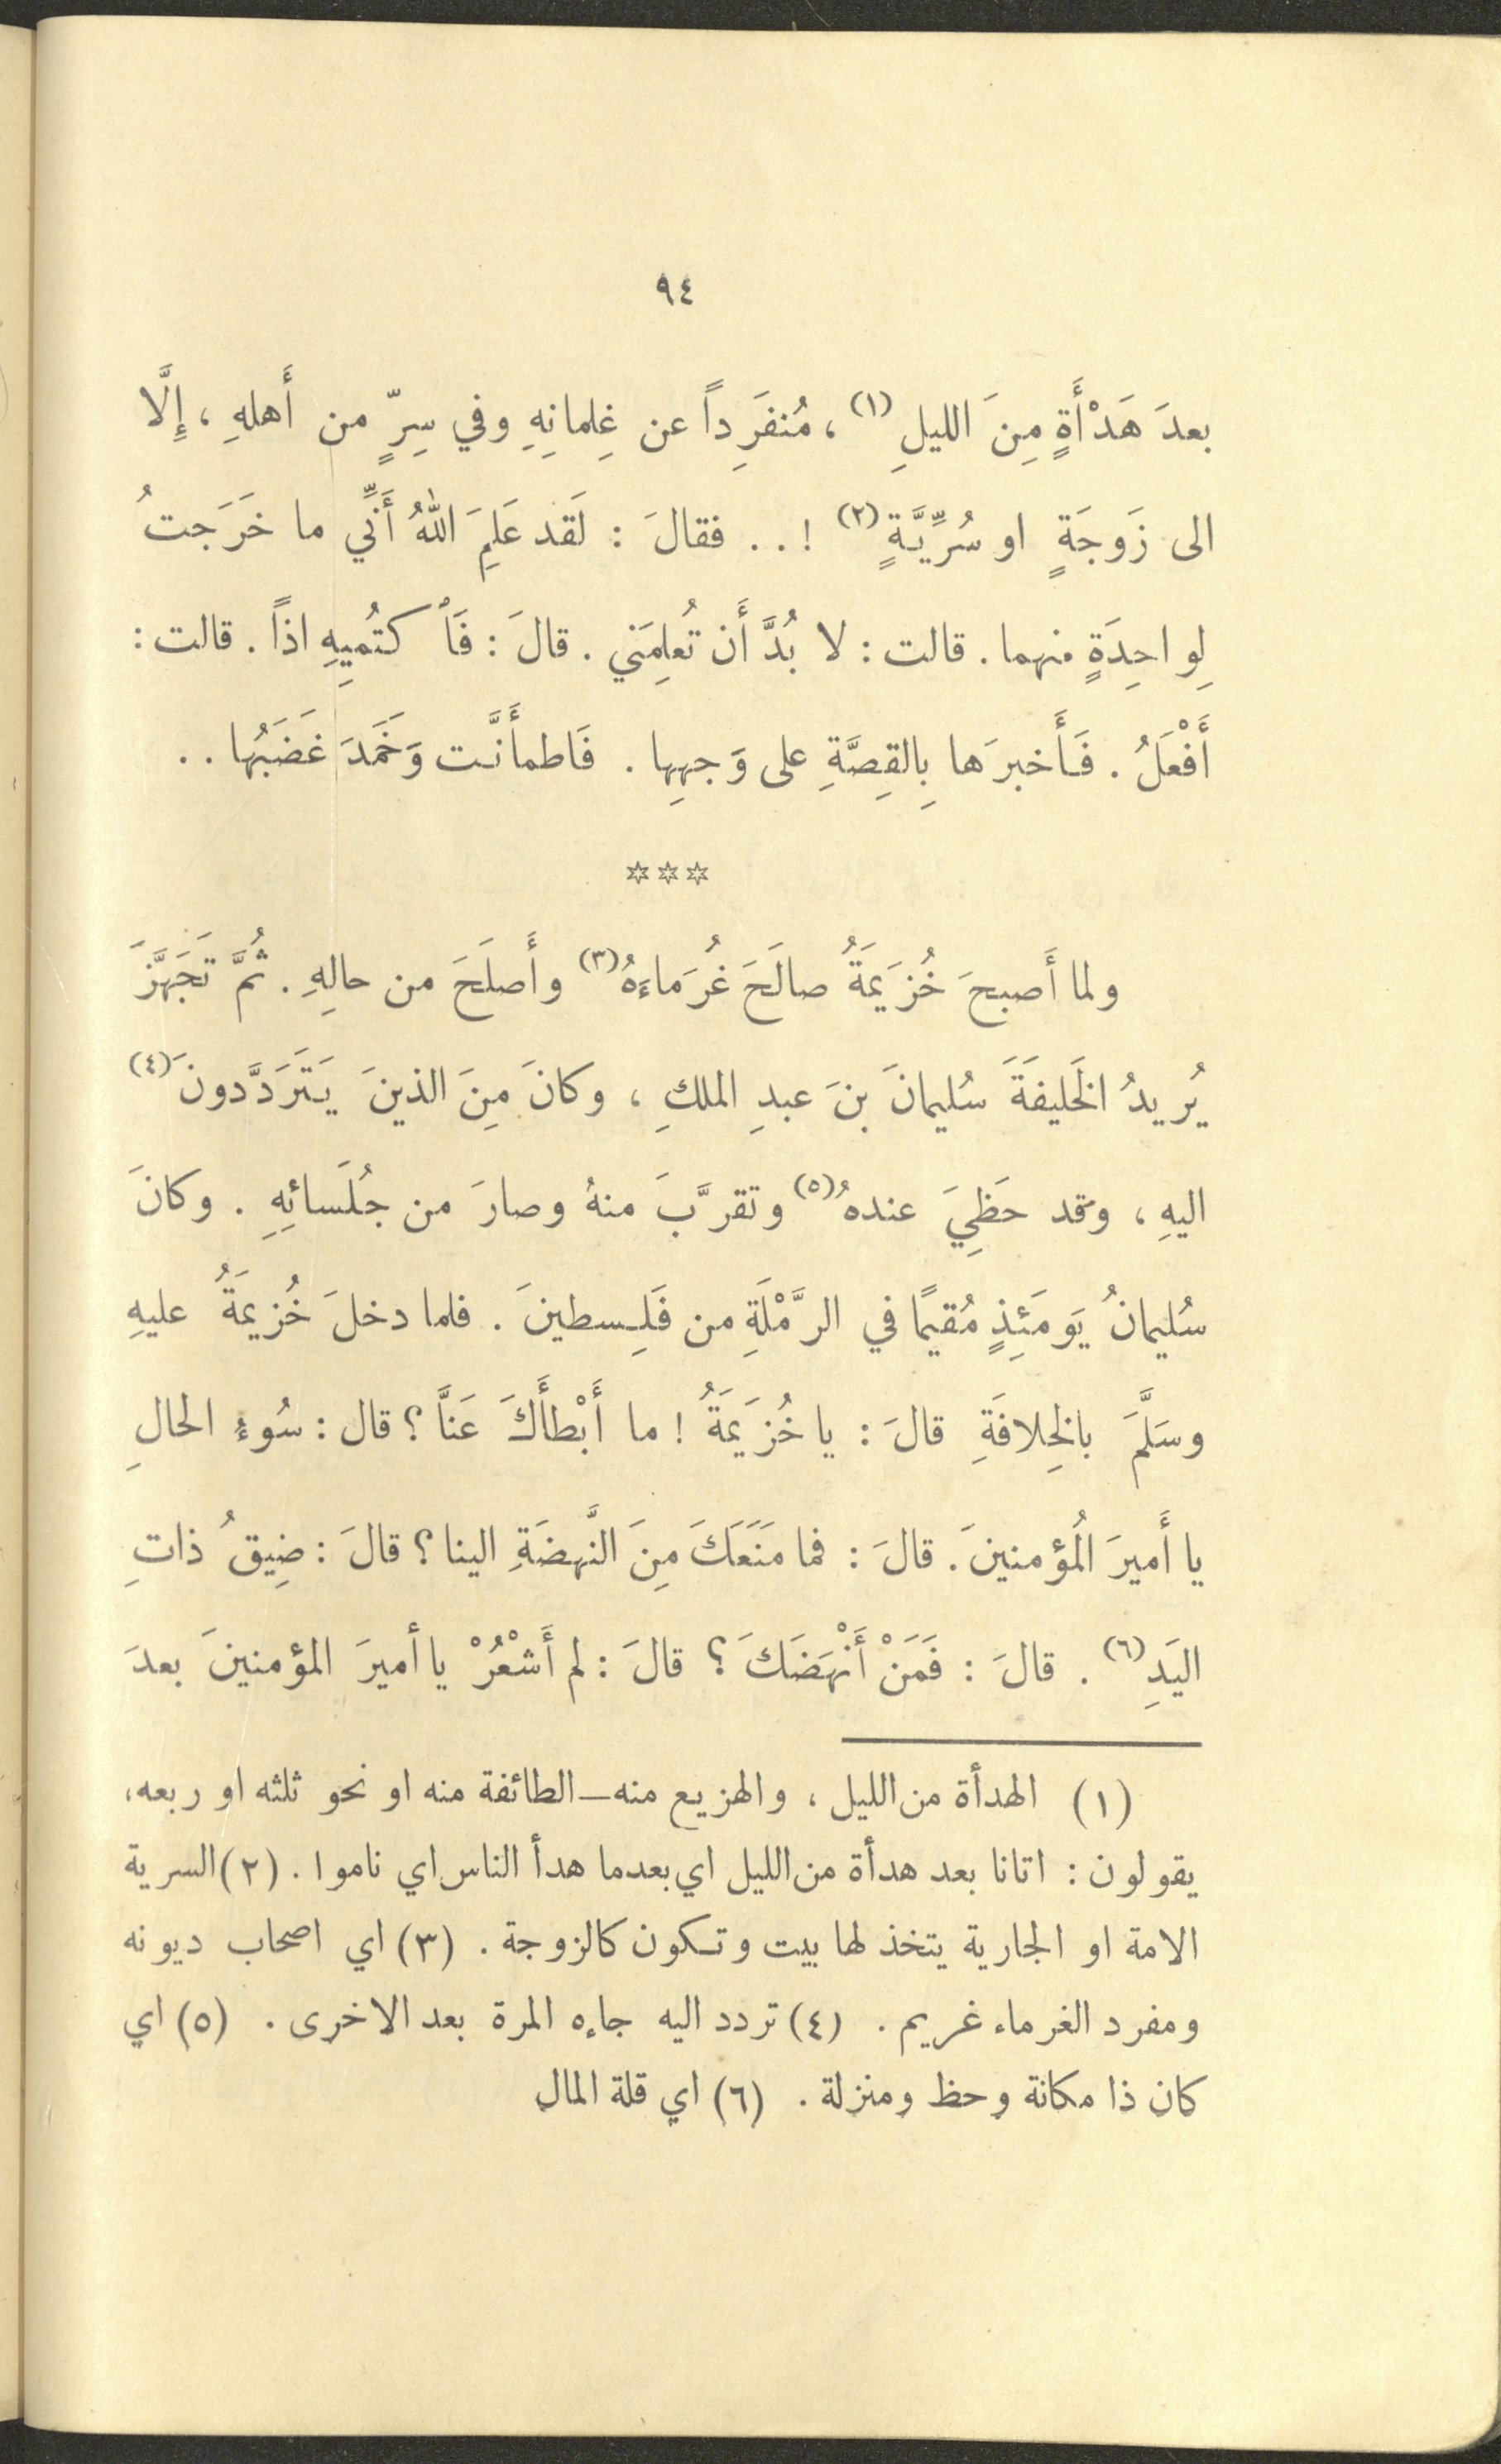 ٩٤
بعدَ هَدْأَةٍ مِنَ الليلِ (١) ، مُنفَرِداً عن غِلمانِهِ وفي سِرٍّ من أَهلهِ ، إِلَّا
الى زَوجَةٍ او سُرِّيَّةٍ (٢) ! . . فقالَ : لَقد عَلِمَ اللهُ أَنِّي ما خَرَجتُ
لِواحِدَةٍ منهما . قالت : لا بُدَّ أَن تُعلِمَني . قالَ : فَاْكتُميِهِ اذاً . قالت :
أَفْعَلُ . فَأَخبرَها بِالقِصَّةِ على وَجهِها . فَاطمأَنَّت وَخَمَدَ غَضَبُها . .
☆☆☆
ولما أَصبحَ خُزَيمَةُ صالَحَ غُرَماءَهُ (٣) وأَصلَحَ من حالهِ . ثُمَّ تَجَهَّزَ
يُريدُ الخَليفَةَ سُليمانَ بنَ عبدِ الملكِ ، وكانَ مِنَ الذينَ يَتَرَدَّدونَ (٤)
اليهِ ، وقد حَظِيَ عندهُ (٥) وتقرَّبَ منهُ وصارَ من جُلَسائِهِ . وكانَ
سُليمانُ يَومَئِذٍ مُقيمًا في الرَّمْلَةِ من فَلِسطينَ . فلما دخلَ خُزيمَةُ عليهِ
وسَلَّمَ بالخِلافَةِ قالَ : يا خُزَيمَةُ ! ما أَبْطأَكَ عَنَّا ؟ قال : سُوءُ الحالِ
يا أَميرَ المُؤمنينَ . قالَ : فما مَنَعَكَ مِنَ النَّهضَةِ الينا ؟ قالَ : ضِيقُ ذاتِ
اليَدِ (٦) . قالَ : فَمَنْ أَنْهَضَكَ ؟ قالَ : لم أَشْعُرْ يا أميرَ المؤمنينَ بعدَ
(١) الهدأة من الليل ، والهزيع منه – الطائفة منه او نحو ثلثه او ربعه ،
يقولون : اتانا بعد هدأة من الليل اي بعدما هدأ الناس اي ناموا . (٢) السرية
الامة او الجارية يتخذ لها بيت وتكون كالزوجة . (٣) اي اصحاب ديونه
ومفرد الغرماء غريم . (٤) تردد اليه جاءه المرة بعد الاخرى . (٥) اي
كان ذا مكانة وحظ ومنزلة . (٦) اي قلة المال